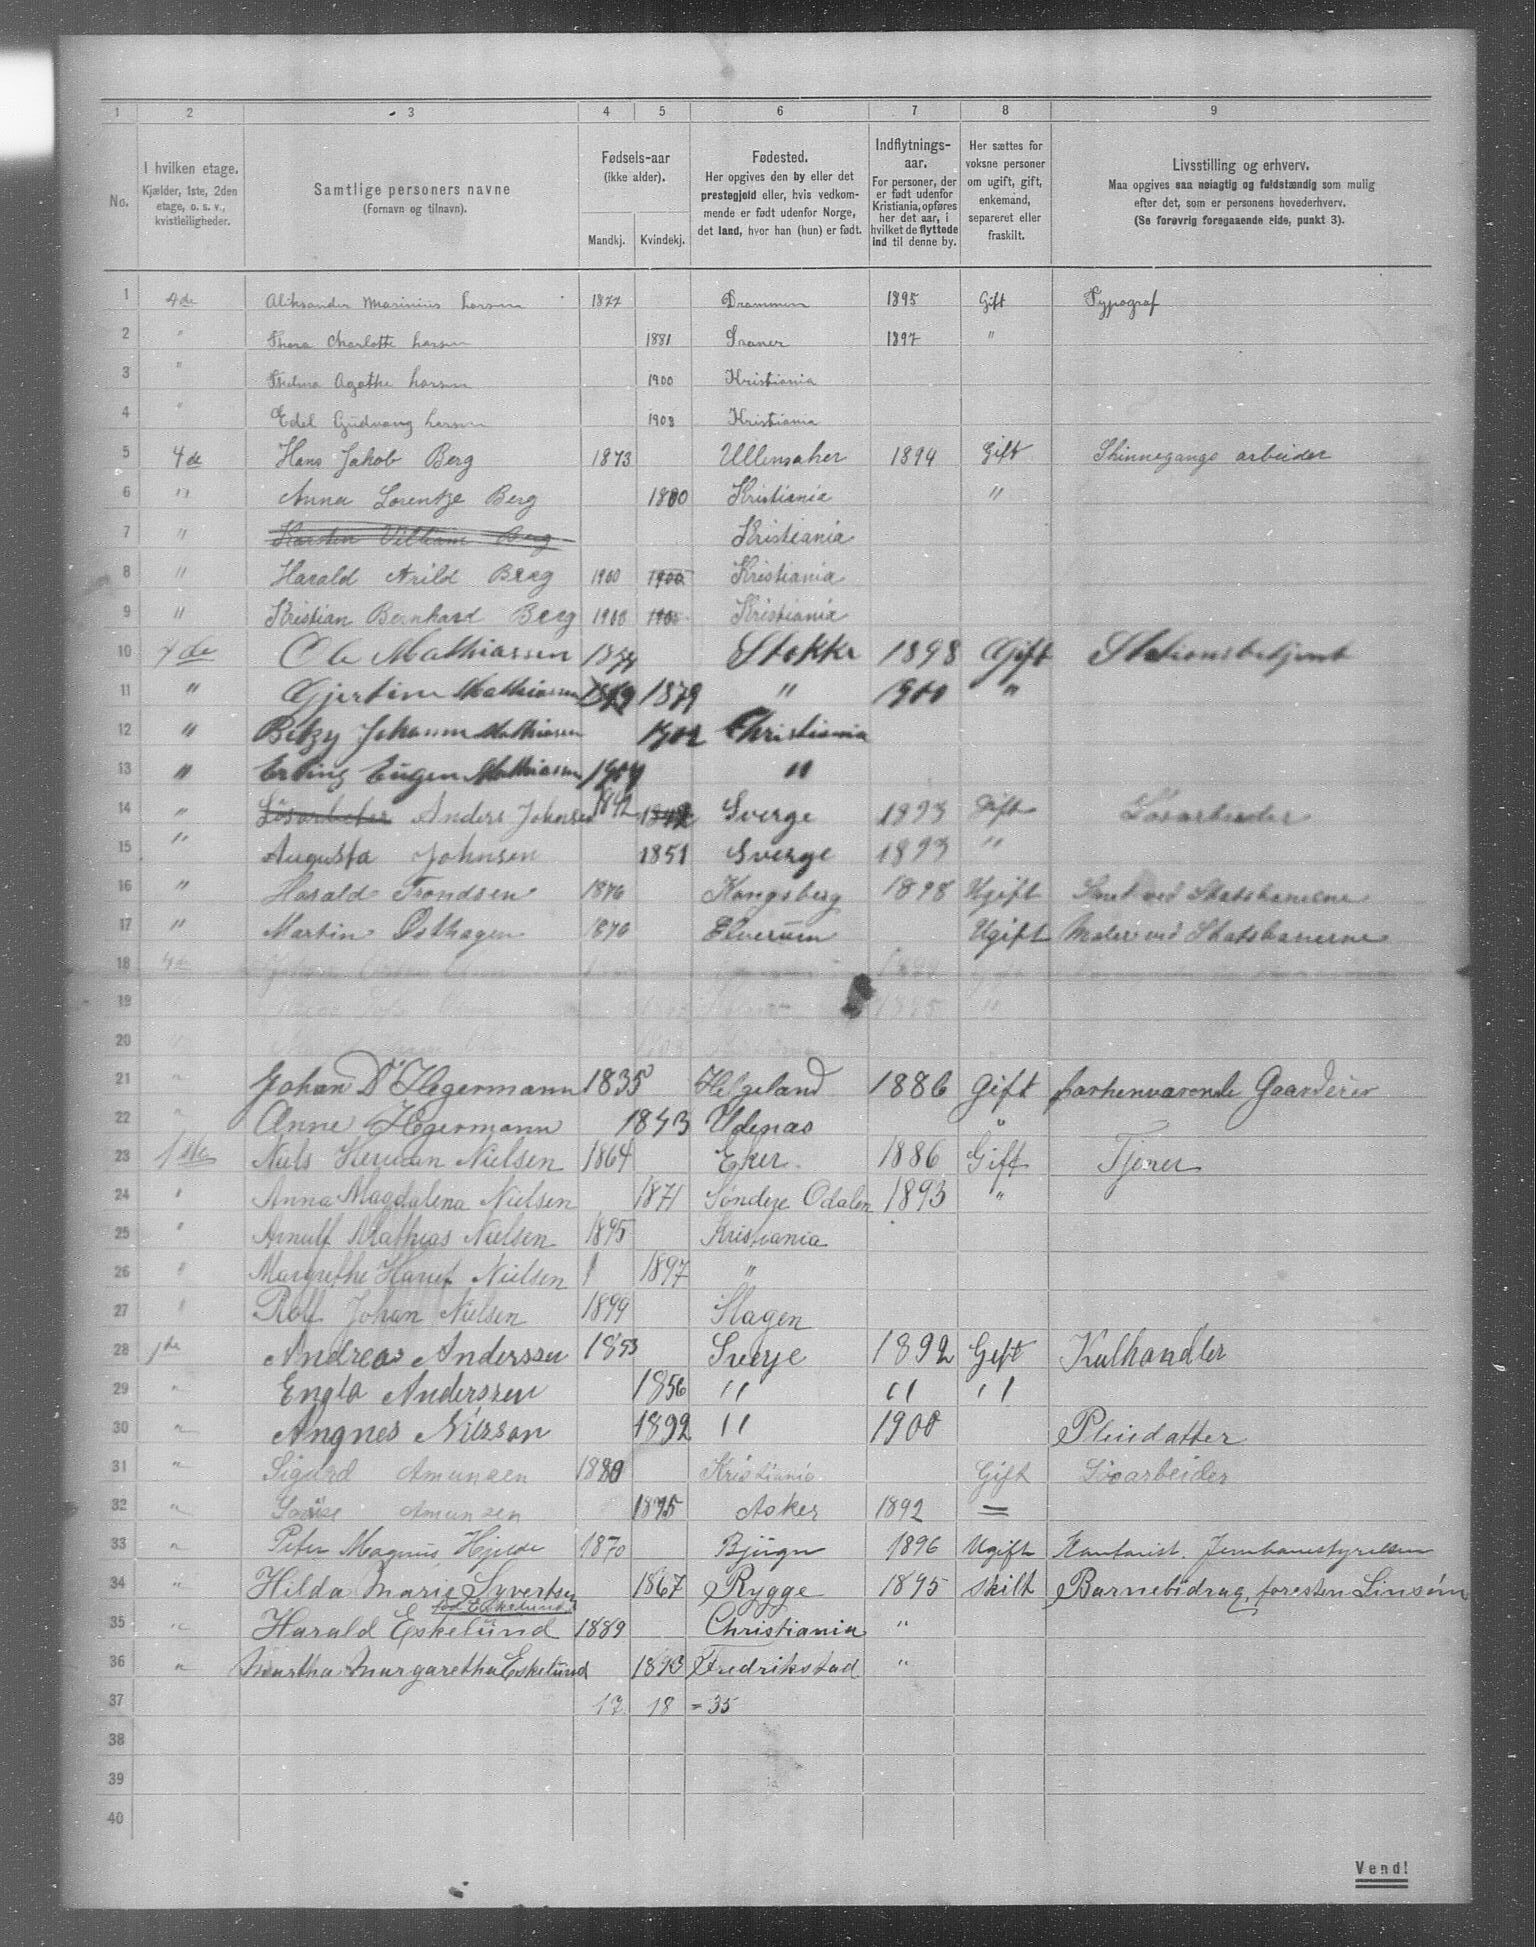 1 2 3 4 5 6 7 8 9
No.
I hvilken etage.
Kjælder, 1ste, 2den
etage, o. s. v.,
kvistleiligheder.
Samtlige personers navne
(Fornavn og tilnavn).
Fødsels-aar
(ikke alder).
Mandkj. Kvindekj.
Fødested.
Her opgives den by eller det
prestegjeld eller, hvis vedkom-
mende er født udenfor Norge,
det land, hvor han (hun) er født.
Indflytnings-
aar.
For personer, der
er født udenfor
Kristiania, opføres
her det aar, i
hvilket de flyttede
ind til denne by.
Her sættes for
voksne personer
om ugift, gift,
enkemand,
separeret eller
fraskilt.
Livsstilling og erhverv.
Maa opgives saa nøiagtig og fuldstændig som mulig
efter det, som er personens hovederhverv.
(Se forøvrig foregaaende side, punkt 3).
1 4de Aliksander Marinius Larsen 1877 Drammen 1895 Gift Typograf
2 " Thora Charlotte Larsen 1881 1897 "
3 " Agathe Larsen 1900 Kristiania
4 " Edel Gudvang Larsen 1903 Kristiania
5 4de Hans Jakob Berg 1873 Ullensaker 1894 Gift Skinnegangs arbeider
6 " Anna Lorentze Berg 1880 Kristiania "
7 " Karsten Villiam Berg Kristiania
8 " Harald Arild Berg 1900 1900 Kristiania
9 " Kristian Bernhard Berg 1900 1900 Kristiania
10 4de Ole Mathiassen 1874 Stokke 1898 Gift Stationsbetjent
11 " Gjertine Mathiassen 1879 1879 " 1900 "
12 " Betzy Johanne Mathiasen 1902 Christiania
13 " Erling Eugen Mathiassen 1904 "
14 " Lösarbeter Anders Johnsen 1842 1842 Sverge 1893 Gift Løsarbeider
15 " Augusta Johnsen 1851 Sverge 1893 "
16 " Harald Trondsen 1876 Kongsberg 1898 Ugift Smed ved Statsbanerne
17 " Martin Østhagen 1876 Elverum Ugift Maler ved Statsbanerne
18 4de
19 1895 "
20
21 " Johan D. Hegermann 1835 Helgeland 1886 Gift forhenværende Gaardeier
22 " Anne Hegermann 1843 Udenæs "
23 1ste Niels Herman Nielsen 1864 Eker 1886 Gift Tjener
24 " Anna Magdalena Nielsen 1871 Søndre Odalen 1893 "
25 " Arnulf Mathias Nielsen 1895 Kristiania
26 " Margrethe Harriet Nielsen 1897 "
27 " Rolf Johan Nielsen 1899 Slagen
28 1de Andreas Anderssen 1853 Sverje 1892 Gift Kulhandler
29 " Engla Anderssen 1856 " " "
30 " Angnes Nilsson 1892 " 1900 Pleiedatter
31 " Sigurd Amunsen 1880 Kristiania Gift Løsarbeider
32 " Amunsen 1875 Asker 1892 =
33 " Peter Magnus Hjelde 1870 Bjugn 1896 Ugift Kontorist. Jernbanestyrelsen
34 " Hilda Marie Syvertsen 1867 Rygge 1895 skilt Barnebidrag,
fød Eskelund
35 " Harald Eskelund 1889 Christiania "
36 " Martha Margaretha Eskelund 1893 Fredrikstad "
37 17 18 = 35
38
39
40
Vend!